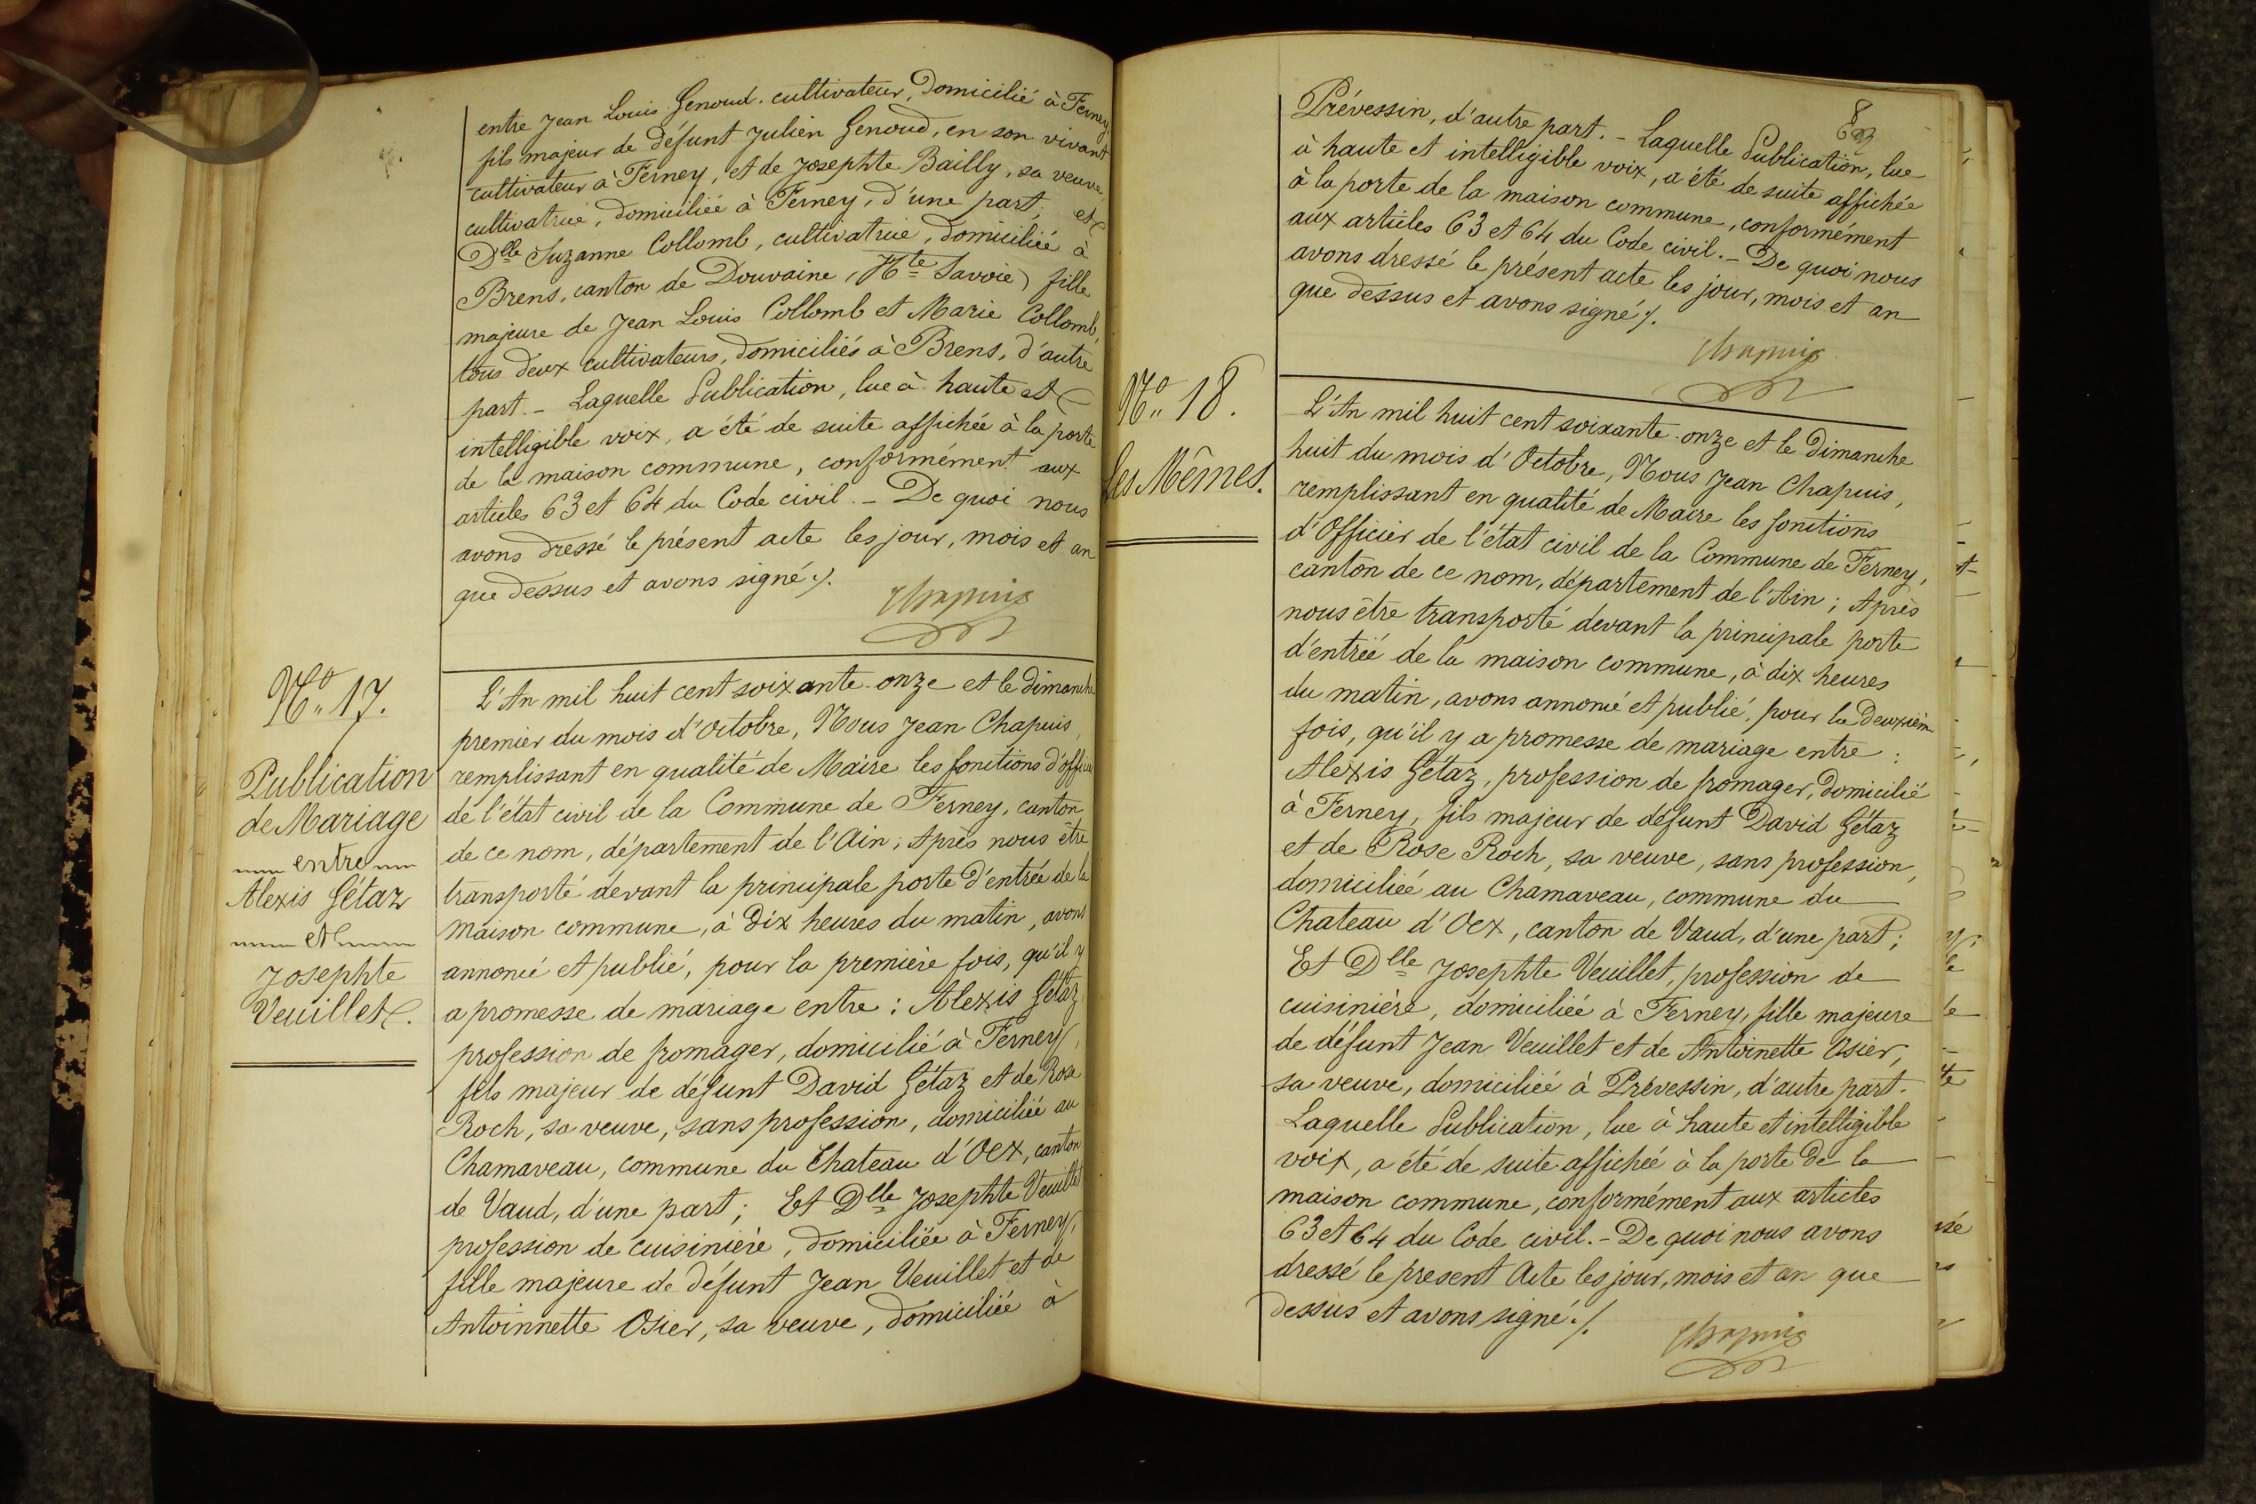 entre Jean Louis Genoud. cultivateur, Domicilié à Ferney,
fils majeur de défunt Julien Genoud, en son vivant
cultivateur à Ferney, et de Josephte Bailly, sa veuve,
cultivatrice, domiciliée à Ferney, d'une part; et
Dlle Suzanne Collomb, cultivatrice, domiciliée à
Brens, canton de Douvaine (Hte Savoie) fille
majeure de Jean Louis Collomb et Marie Collomb,
tous deux cultivateurs, domiciliés à Brens, d'autre
part. _ Laquelle Publication, lue à haute et
intelligible voix, a été de suite affichée à la porte
de la maison commune, conformément aux
articles 63 et 64 du Code civil. _ De quoi nous
avons dressé le présent acte les jour, mois et an
que dessus et avons signé ./.
Chapuis
No 17.
Publication
de Mariage
entre
Alexis Gétaz
et
Josephte
Veuillet.
L'An mil huit cent soixante-onze et le dimanche
premier du mois d'Octobre, Nous Jean Chapuis,
remplissant en qualité de Maire les fonctions d'officier
de l'état civil de la Commune de Ferney, canton
de ce nom, département de l'Ain; Après nous être
transporté devant la principale porte d'entrée de la
maison commune, à Dix heures du matin, avons
annoncé et publié, pour la première fois, qu'il y
a promesse de mariage entre : Alexis Gétaz
profession de fromager, domicilié à Ferney,
fils majeur de défunt David Gétaz et de Rose
Roch, sa veuve, sans profession, domiciliée au
Chamaveau, commune du Chateau d'Oex, canton
de Vaud, d'une part; Et Dlle Josephte Veuillet
profession de cuisinière, domiciliée à Ferney,
fille majeure de défunt Jean Veuillet et de
Antoinnette Osier, sa veuve, domiciliée à
8
Prévessin, d'autre part. _ Laquelle Publication, lue
à haute et intelligible voix, a été de suite affichée
à la porte de la maison commune, conformément
aux articles 63 et 64 du Code civil. _ De quoi nous
avons dressé le présent acte les jour, mois et an
que dessus et avons signé ./.
Chapuis
No 18.
Les Mêmes.
L'An mil huit cent soixante-onze et le Dimanche
huit du mois d'Octobre, Nous Jean Chapuis,
remplissant en qualité de Maire les fonctions
d'Officier de l'état civil de la Commune de Ferney,
canton de ce nom, département de l'Ain; Après
nous être transporté devant la principale porte
d'entrée de la maison commune, à dix heures
du matin, avons annoncé et publié, pour la Deuxièm
fois, qu'il y a promesse de mariage entre :
Alexis Gétaz, profession de fromager, domicilié
à Ferney, fils majeur de défunt David Gétaz
et de Rose Roch, sa veuve, sans profession,
domiciliée au Chamaveau, commune du
Chateau d'Oex, canton de Vaud, d'une part;
Et Dlle Josephte Veuillet, profession de
cuisinière, domiciliée à Ferney, fille majeure
de défunt Jean Veuillet et de Antoinette Osier,
sa veuve, domiciliée à Prévessin, d'autre part.
Laquelle Publication, lue à haute et intelligible
voix, a été de suite affichée à la porte de la
maison commune, conformément aux articles
63 et 64 du Code civil. _ De quoi nous avons
dressé le present Acte les jour, mois et an que
dessus et avons signé ./.
Chapuis